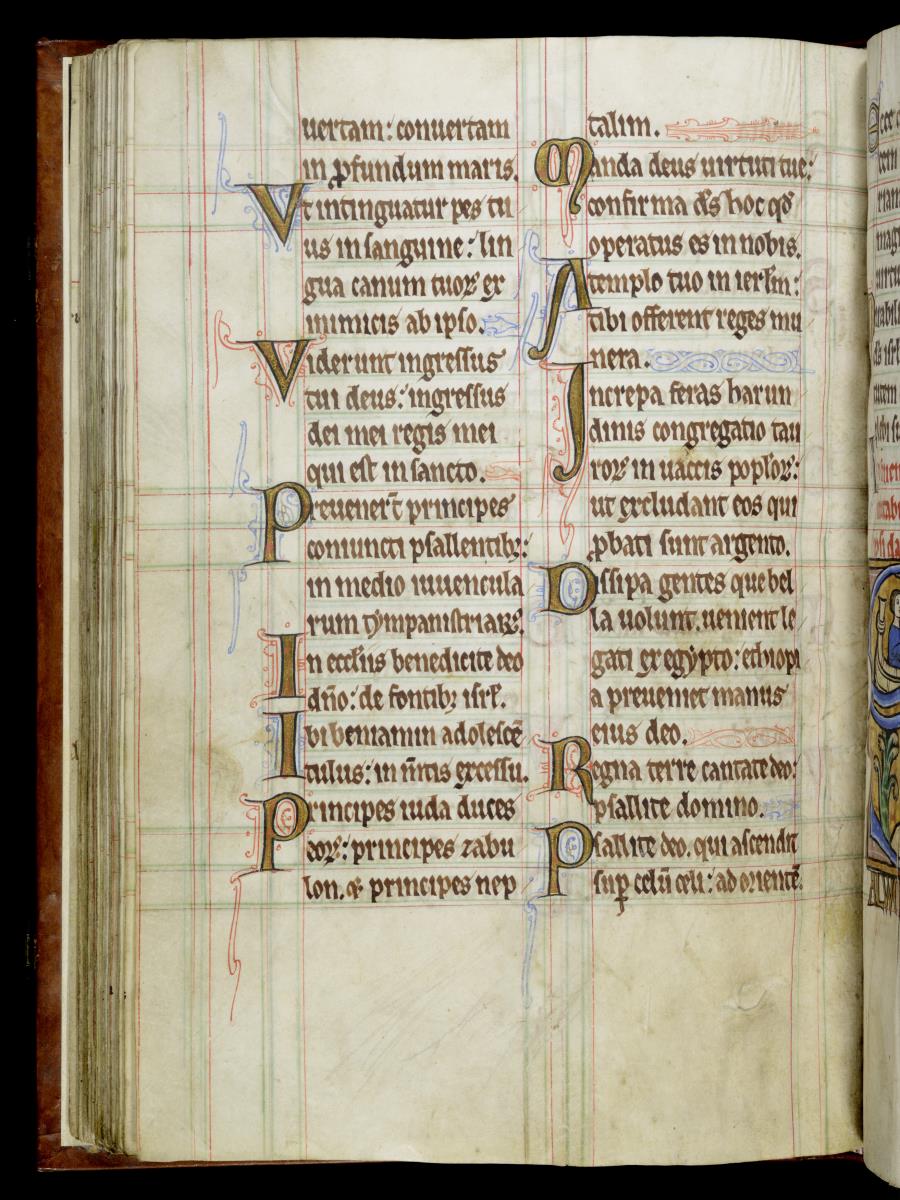 uertam: conuertam
in ꝓfundum maris.
Vt intinguatur pes tu
us in sanguine: lin
gua canum tuoꝝ ex
inimicis ab ipso.
Viderunt ingressus
tui deus: ingressus
dei mei regis mei
qui est in sancto.
Preuener̄t principes
coniuncti psallentibꝫ:
in medio iuuencula
rum tympanistriaꝝ.
In eccl̄iis benedicite deo
dn̄o: de fontibꝫ isrl̄.
Ibi beniamin adolescē
tulus: in m̄tis excessu.
Principes iuda duces
eoꝝ: principes zabu
lon. ⁊ principes nep
talim.
Manda deus uirtuti tue:
confirma d̄s hoc qd̄
operatus es in nobis.
A templo tuo in ierl̄m:
tibi offerent reges mu
nera.
Increpa feras harun
dinis congregatio tau
roꝝ in uaccis popl̄oꝝ:
ut excludant eos qui
ꝓbati sunt argento.
Dissipa gentes que bel
la uolunt. uenient le
gati ex egypto: ethiopi
a preueniet manus
eius deo.
Regna terre cantate deo:
psallite domino.
Psallite deo. qui ascendit
suꝑ celū celi: ad orientē.